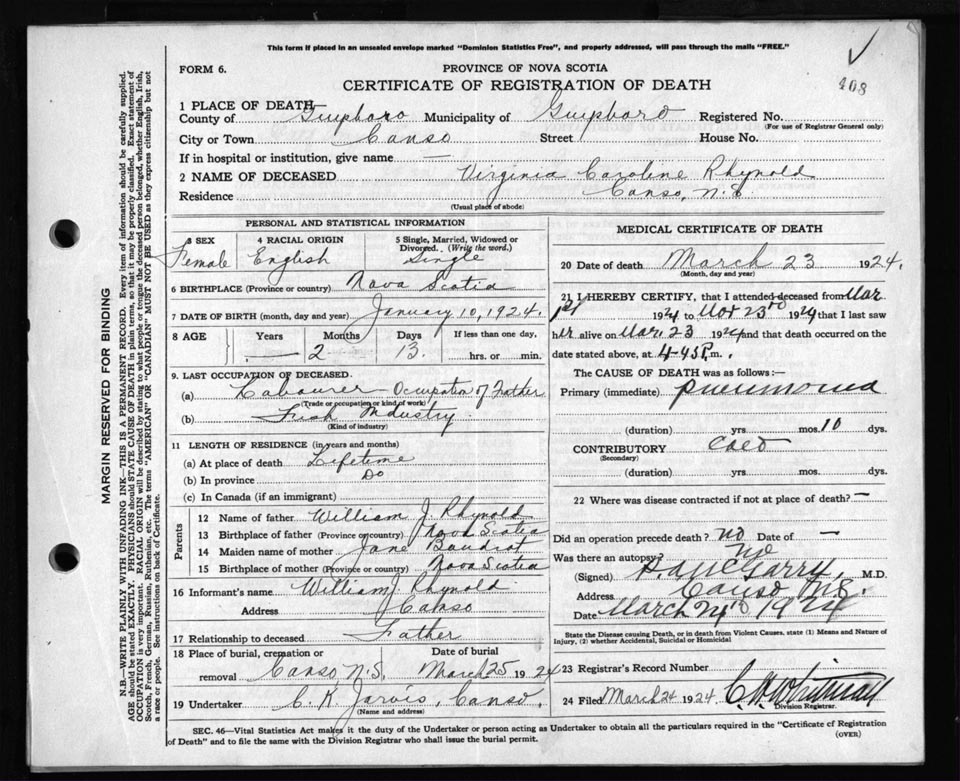 This form if placed in an unsealed envelope marked "Dominion Statistics Free", and properly addressed, will pass through the mails "FREE."
408
FORM 6.
PROVINCE OF NOVA SCOTIA
CERTIFICATE OF REGISTRATION OF DEATH
1 PLACE OF DEATH—
County of Guysboro Municipality of Guysboro Registered No.
(For use of Registrar General only)
City or Town Canso Street House No.
If in hospital or institution, give name —
2 NAME OF DECEASED Virginia Caroline Rhynold
Residence Canso, N.S.
(Usual place of abode)
PERSONAL AND STATISTICAL INFORMATION
3 SEX 4 RACIAL ORIGIN 5 Single, Married, Widowed or Divorced. (Write the word.)
Female English Single
6 BIRTHPLACE (Province or country) Nova Scotia
7 DATE OF BIRTH (month, day and year) January 10, 1924.
8 AGE Years Months Days If less than one day,
— 2 13. hrs. or min.
9. LAST OCCUPATION OF DECEASED.
(a) Labourer – Occupation of Father
(Trade or occupation or kind of work)
(b) Fish Industry.
(Kind of industry)
11 LENGTH OF RESIDENCE (in years and months)
(a) At place of death Lifetime
(b) In province Do
(c) In Canada (if an immigrant)
Parents
12 Name of father William J. Rhynold
13 Birthplace of father (Province or country) Nova Scotia
14 Maiden name of mother Jane Boudrot
15 Birthplace of mother (Province or country) Nova Scotia
16 Informant's name William J. Rhynold
Address Canso
17 Relationship to deceased Father
18 Place of burial, cremation or removal Date of burial
Canso, N.S. March 25 1924
19 Undertaker C. K. Jarvis, Canso.
(Name and address)
MEDICAL CERTIFICATE OF DEATH
20 Date of death March 23 1924.
(Month, day and year)
21 I HEREBY CERTIFY, that I attended deceased from Mar
1st 1924 to Mar 23rd 1924 that I last saw
her alive on Mar. 23 1924 and that death occurred on
date stated above, at 4-45 P.m.
The CAUSE OF DEATH was as follows:—
Primary (immediate) Pneumonia
(duration) yrs. mos. 10 dys.
CONTRIBUTORY Cold
(Secondary)
(duration) yrs. mos. dys.
22 Where was disease contracted if not at place of death? —
Did an operation precede death? No Date of —
Was there an autopsy? No
(Signed) McGarry, M.D.
Address Canso N.S.
Date March 24 1924
State the Disease causing Death, or in death from Violent Causes, state (1) Means and Nature of
Injury, (2) whether Accidental, Suicidal or Homicidal
23 Registrar's Record Number
24 Filed March 24 1924. Whitman
Division Registrar.
SEC. 46—Vital Statistics Act makes it the duty of the Undertaker or person acting as Undertaker to obtain all the particulars required in the "Certificate of Registration
of Death" and to file the same with the Division Registrar who shall issue the burial permit.
(OVER)
MARGIN RESERVED FOR BINDING
N.B.—WRITE PLAINLY WITH UNFADING INK—THIS IS A PERMANENT RECORD. Every item of information should be carefully supplied.
AGE should be stated EXACTLY. PHYSICIANS should STATE CAUSE OF DEATH in plain terms, so that it may be properly classified. Exact statement of
OCCUPATION is very important. RACIAL ORIGIN will be described by stating to what people or tongue the deceased person belonged, whether English, Irish,
Scotch, French, German, Russian, Ruthenian, etc. The terms "AMERICAN" OR "CANADIAN" MUST NOT BE USED as they express citizenship but not
a race or people. See instructions on back of Certificate.